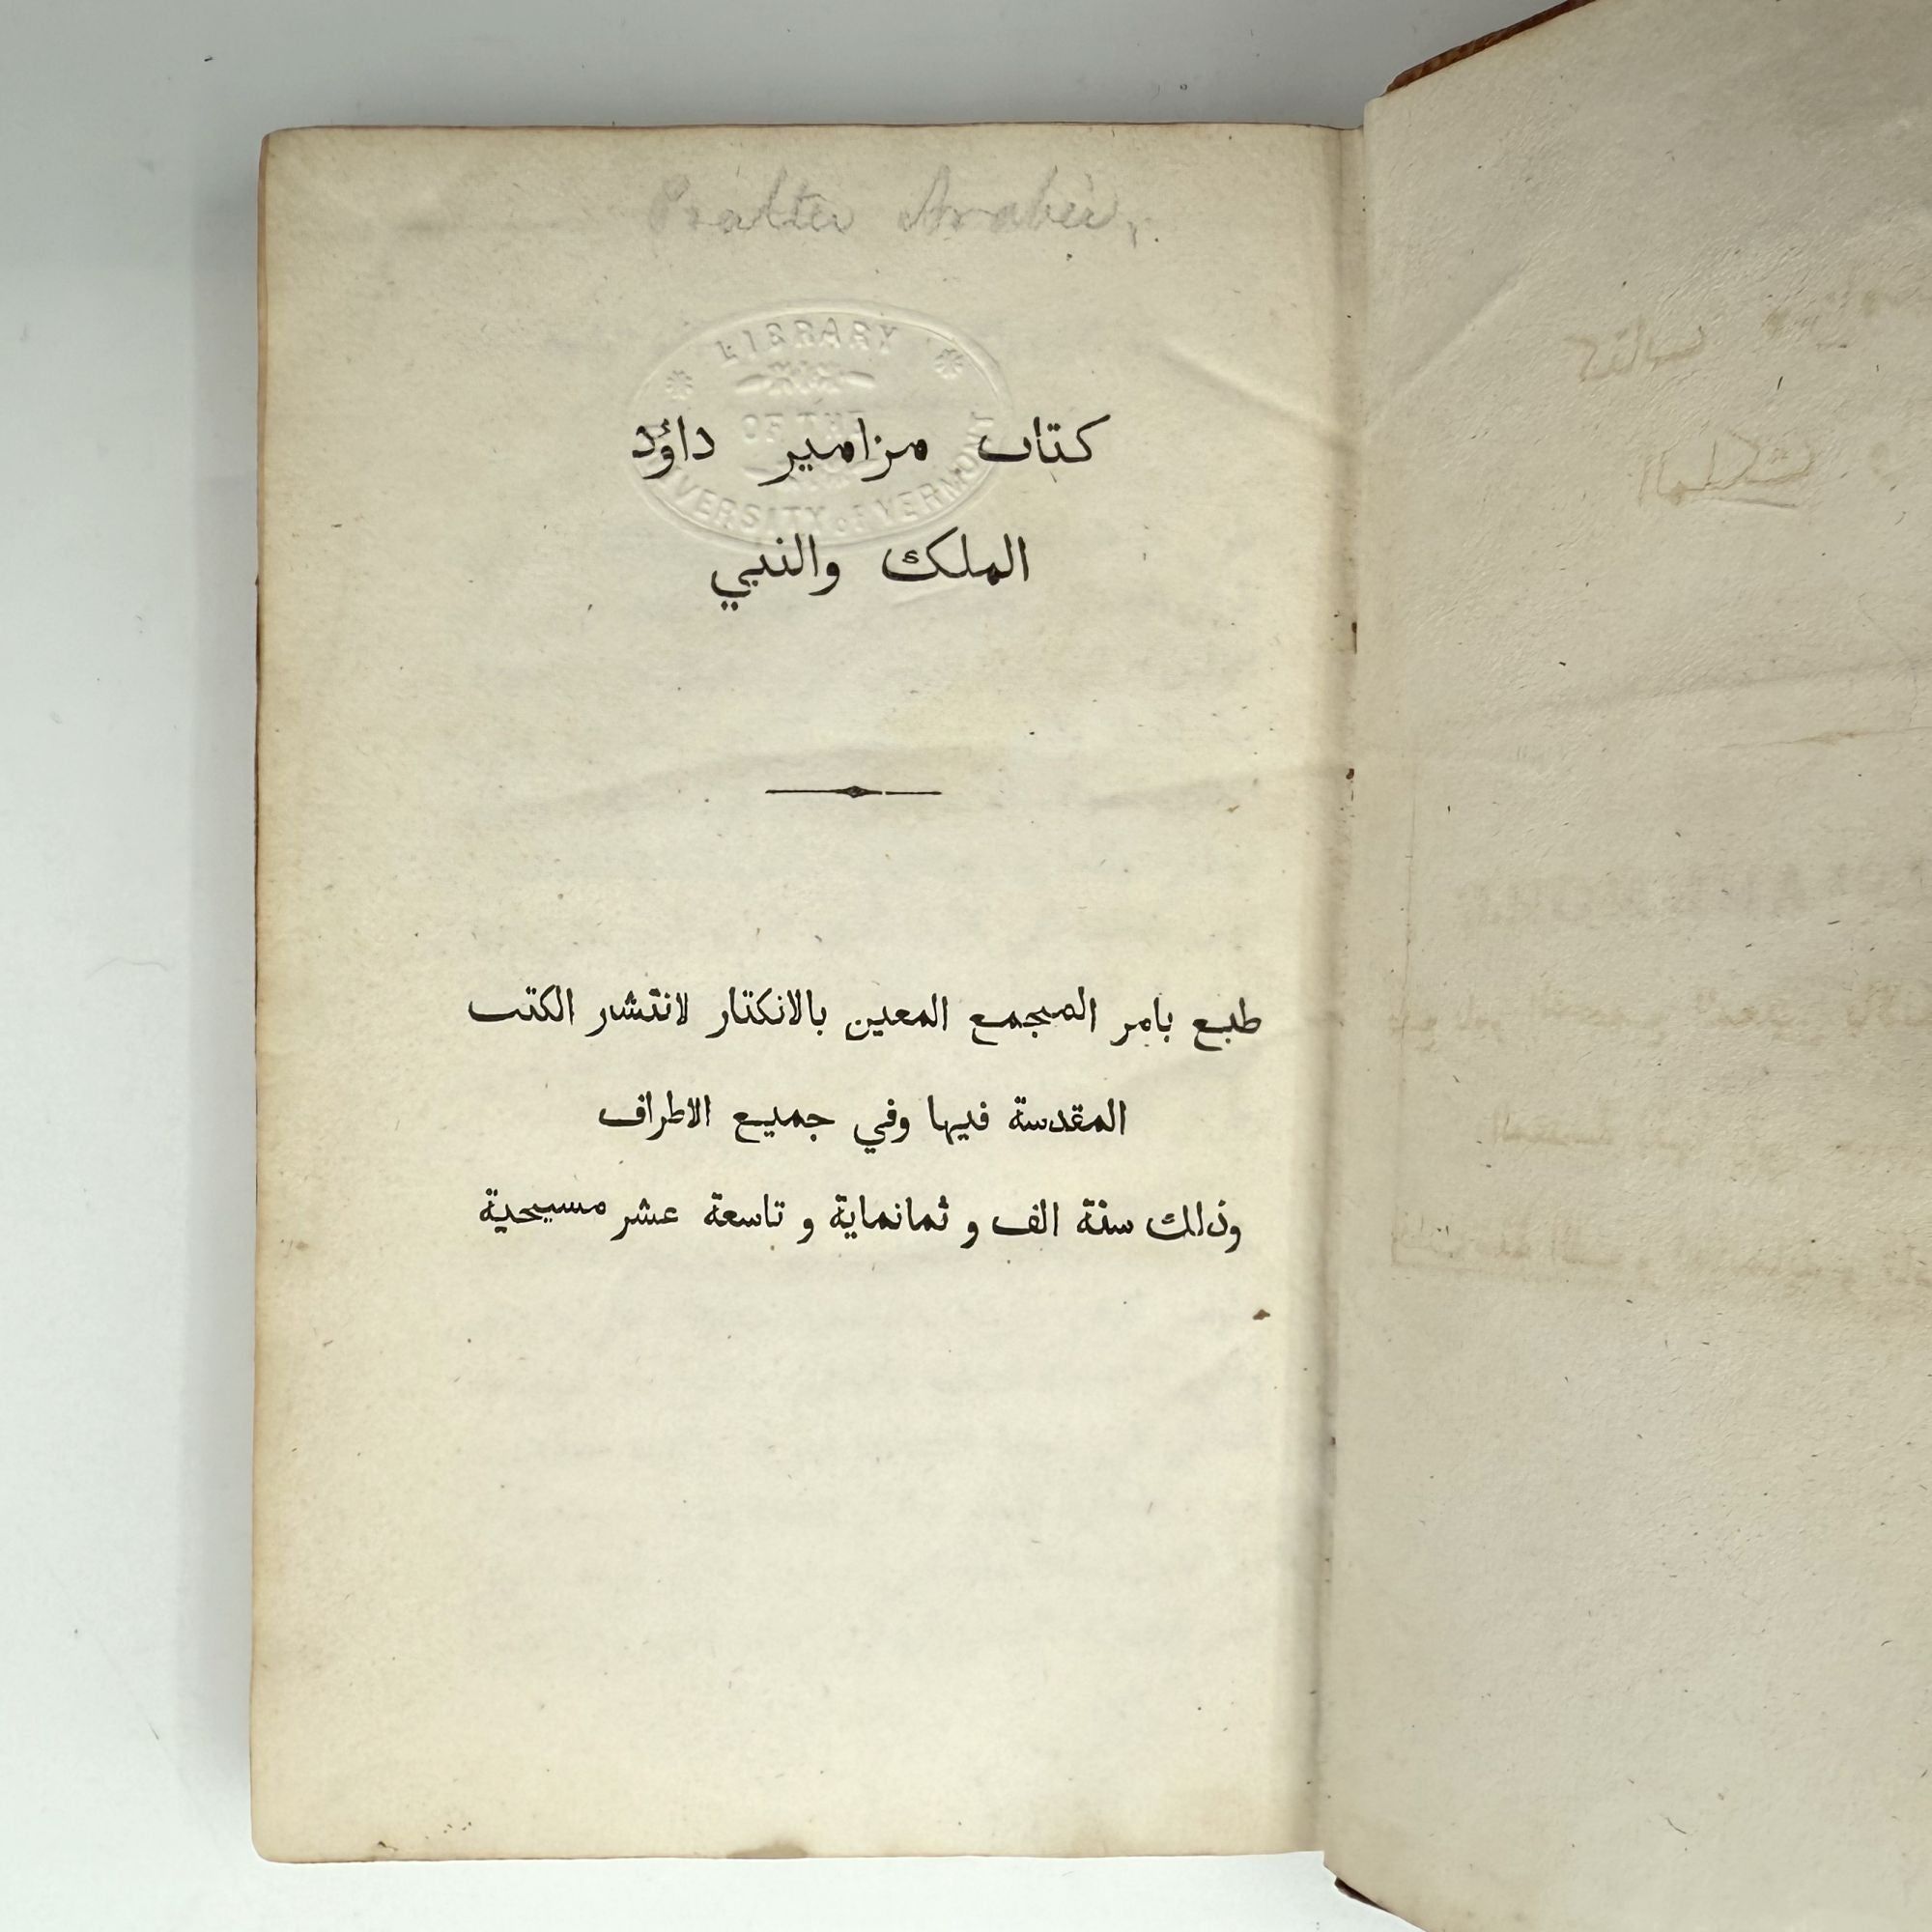 LIBRARY OF THE UNIVERSITY OF VERMONT
كتاب مزامير داؤد
الملك والنبي
طبع بامر المجمع المعين بالانكتار لانتشر الكتب
المقدسة فيها وفي جميع الاطراف
وذلك سنة الف و ثمانماية و تاسعة عشر مسيحية